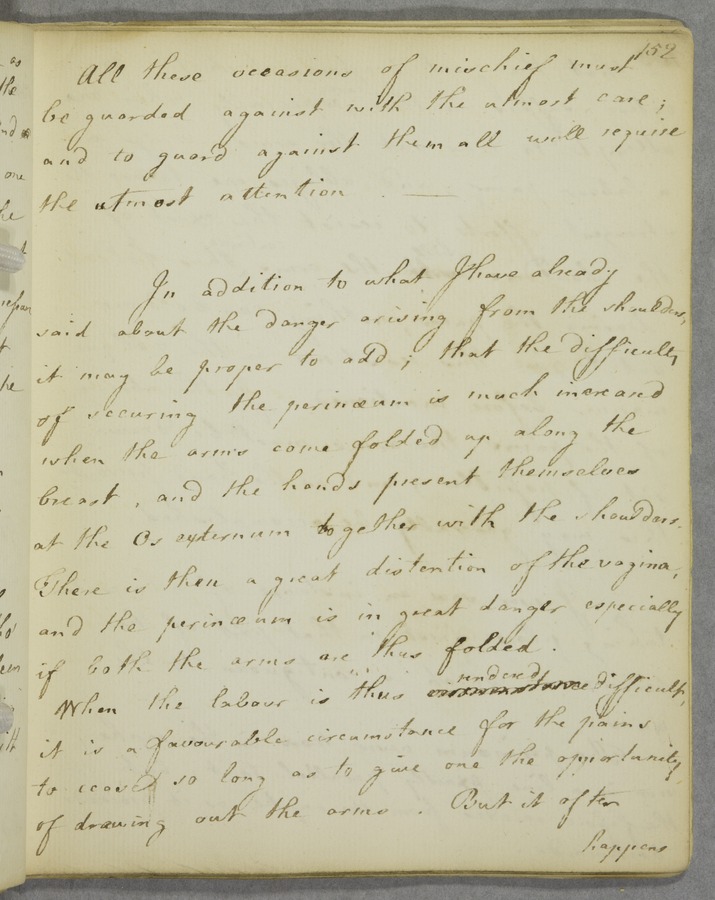 152
All these occasions of mischief must
be guarded against with the utmost care;
and to guard against them all will require
the utmost attention . —
In addition to what I have already
said about the danger arising from the shoulders,
it may be proper to add; that the difficulty
of securing the perinæum is much increased
when the arms come folded up along the
breast, and the hands present themselves
at the Os externum together with the shoulders.
There is then a great distention of the vagina,
and the perinæum is in great danger especially
if both the arms are thus folded.
rendered
When the labour is thus circumstance difficult,
it is a favourable circumstance for the pains
to cease so long as to give one the opportunity
of drawing out the arms. But it often
happens